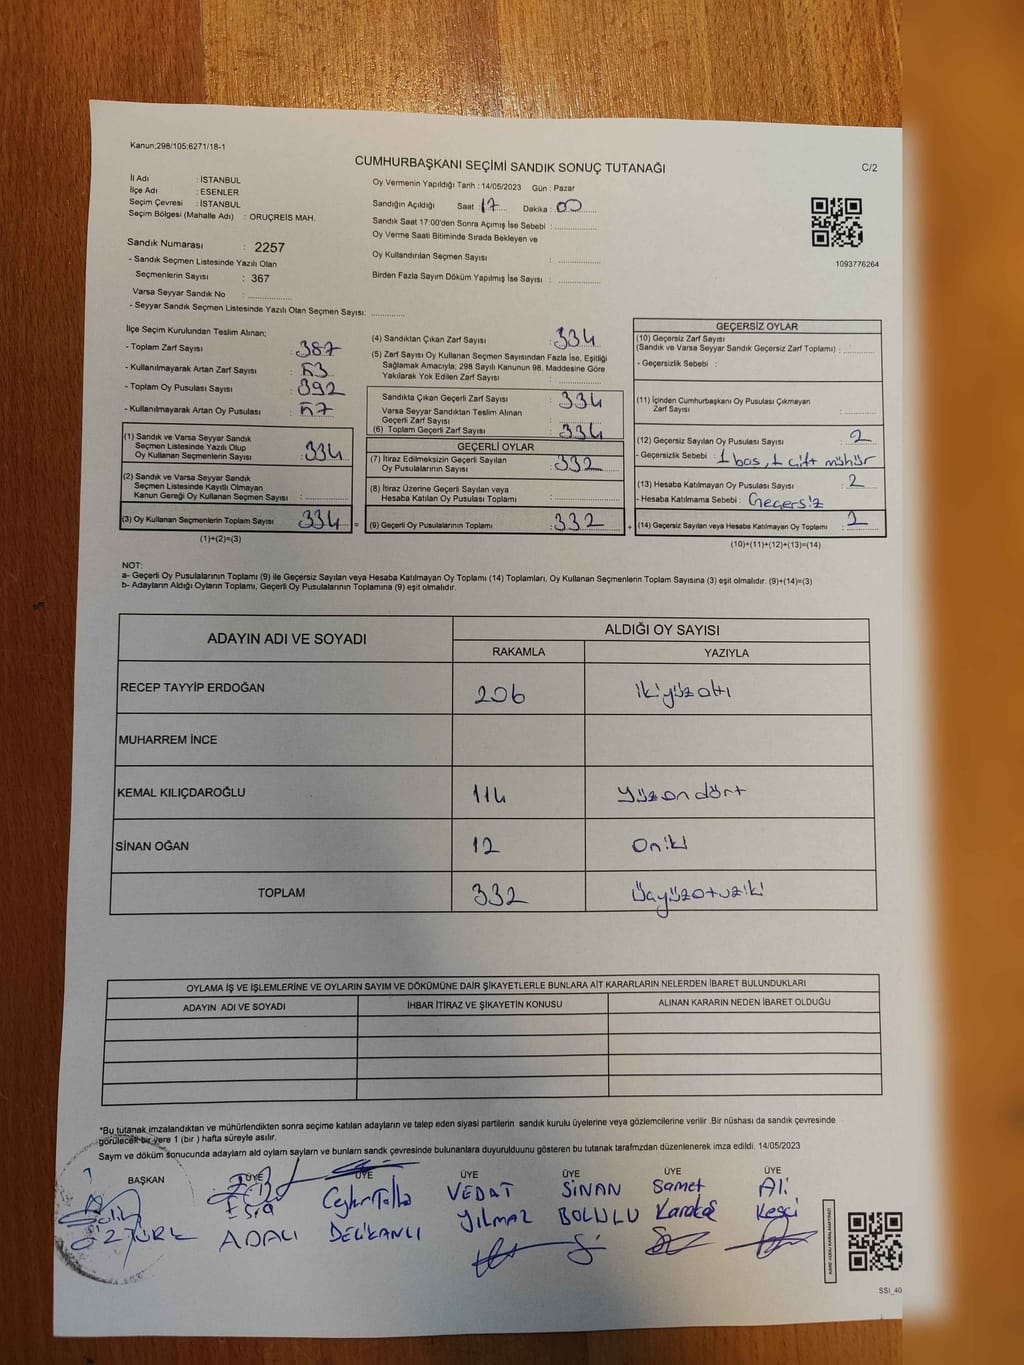 Kanun;298/105;6271/18-1
CUMHURBAŞKANI SEÇİMİ SANDIK SONUÇ TUTANAĞI
C/2
İl Adı : İSTANBUL
İlçe Adı : ESENLER
Seçim Çevresi : İSTANBUL
Seçim Bölgesi (Mahalle Adı) : ORUÇREİS MAH.
Oy Vermenin Yapıldığı Tarih : 14/05/2023 Gün : Pazar
Sandığın Açıldığı Saat : 17 Dakika : 00
Sandık Saat 17:00'den Sonra Açımış İse Sebebi :
Oy Verme Saati Bitiminde Sırada Bekleyen ve
Oy Kullandırılan Seçmen Sayısı :
Birden Fazla Sayım Döküm Yapılmış İse Sayısı :
1093776264
Sandık Numarası : 2257
- Sandık Seçmen Listesinde Yazılı Olan
Seçmenlerin Sayısı : 367
Varsa Seyyar Sandık No :
- Seyyar Sandık Seçmen Listesinde Yazılı Olan Seçmen Sayısı:
İlçe Seçim Kurulundan Teslim Alınan;
- Toplam Zarf Sayısı : 387
- Kullanılmayarak Artan Zarf Sayısı : 53
- Toplam Oy Pusulası Sayısı : 392
- Kullanılmayarak Artan Oy Pusulası : 57
(1) Sandık ve Varsa Seyyar Sandık
Seçmen Listesinde Yazılı Olup
Oy Kullanan Seçmenlerin Sayısı : 334
(2) Sandık ve Varsa Seyyar Sandık
Seçmen Listesinde Kayıtlı Olmayan
Kanun Gereği Oy Kullanan Seçmen Sayısı :
(3) Oy Kullanan Seçmenlerin Toplam Sayısı 334 =
(1)+(2)=(3)
(4) Sandıktan Çıkan Zarf Sayısı : 334
(5) Zarf Sayısı Oy Kullanan Seçmen Sayısından Fazla İse, Eşitliği
Sağlamak Amacıyla; 298 Sayılı Kanunun 98. Maddesine Göre
Yakılarak Yok Edilen Zarf Sayısı :
Sandıkta Çıkan Geçerli Zarf Sayısı : 334
Varsa Seyyar Sandıktan Teslim Alınan
Geçerli Zarf Sayısı :
(6) Toplam Geçerli Zarf Sayısı : 334
GEÇERLİ OYLAR
(7) İtiraz Edilmeksizin Geçerli Sayılan
Oy Pusulalarının Sayısı : 332
(8) İtiraz Üzerine Geçerli Sayılan veya
Hesaba Katılan Oy Pusulası Toplamı :
(9) Geçerli Oy Pusulalarının Toplamı : 332 +
GEÇERSİZ OYLAR
(10) Geçersiz Zarf Sayısı
(Sandık ve Varsa Seyyar Sandık Geçersiz Zarf Toplamı) :
- Geçersizlik Sebebi :
(11) İçinden Cumhurbaşkanı Oy Pusulası Çıkmayan
Zarf Sayısı :
(12) Geçersiz Sayılan Oy Pusulası Sayısı : 2
- Geçersizlik Sebebi : 1 boş, 1 çift mühür
(13) Hesaba Katılmayan Oy Pusulası Sayısı : 2
- Hesaba Katılmama Sebebi : Geçersiz
(14) Geçersiz Sayılan veya Hesaba Katılmayan Oy Toplamı : 2
(10)+(11)+(12)+(13)=(14)
NOT:
a- Geçerli Oy Pusulalarının Toplamı (9) ile Geçersiz Sayılan veya Hesaba Katılmayan Oy Toplamı (14) Toplamları, Oy Kullanan Seçmenlerin Toplam Sayısına (3) eşit olmalıdır. (9)+(14)=(3)
b- Adayların Aldığı Oyların Toplamı, Geçerli Oy Pusulalarının Toplamına (9) eşit olmalıdır.
ADAYIN ADI VE SOYADI
ALDIĞI OY SAYISI
RAKAMLA YAZIYLA
RECEP TAYYİP ERDOĞAN 206 ikiyüzaltı
MUHARREM İNCE
KEMAL KILIÇDAROĞLU 114 Yüzondört
SİNAN OĞAN 12 Oniki
TOPLAM 332 Üçyüzotuziki
OYLAMA İŞ VE İŞLEMLERİNE VE OYLARIN SAYIM VE DÖKÜMÜNE DAİR ŞİKAYETLERLE BUNLARA AİT KARARLARIN NELERDEN İBARET BULUNDUKLARI
ADAYIN ADI VE SOYADI İHBAR İTİRAZ VE ŞİKAYETİN KONUSU ALINAN KARARIN NEDEN İBARET OLDUĞU
*Bu tutanak imzalandıktan ve mühürlendikten sonra seçime katılan adayların ve talep eden siyasi partilerin sandık kurulu üyelerine veya gözlemcilerine verilir .Bir nüshası da sandık çevresinde
görülecek bir yere 1 (bir ) hafta süreyle asılır.
Sayım ve döküm sonucunda adayların ald oylam saylarn ve bunlarn sandk çevresinde bulunanlara duyurulduunu gösteren bu tutanak tarafmzdan düzenlenerek imza edildi. 14/05/2023
BAŞKAN ÜYE ÜYE ÜYE ÜYE ÜYE ÜYE
Esra VEDAT SİNAN Samet Ali
ÖZTÜRK ADALI DELİKANLI YILMAZ BOLULU Keşçi
KARE KODU KARALAMAYINIZ!
SSİ_40